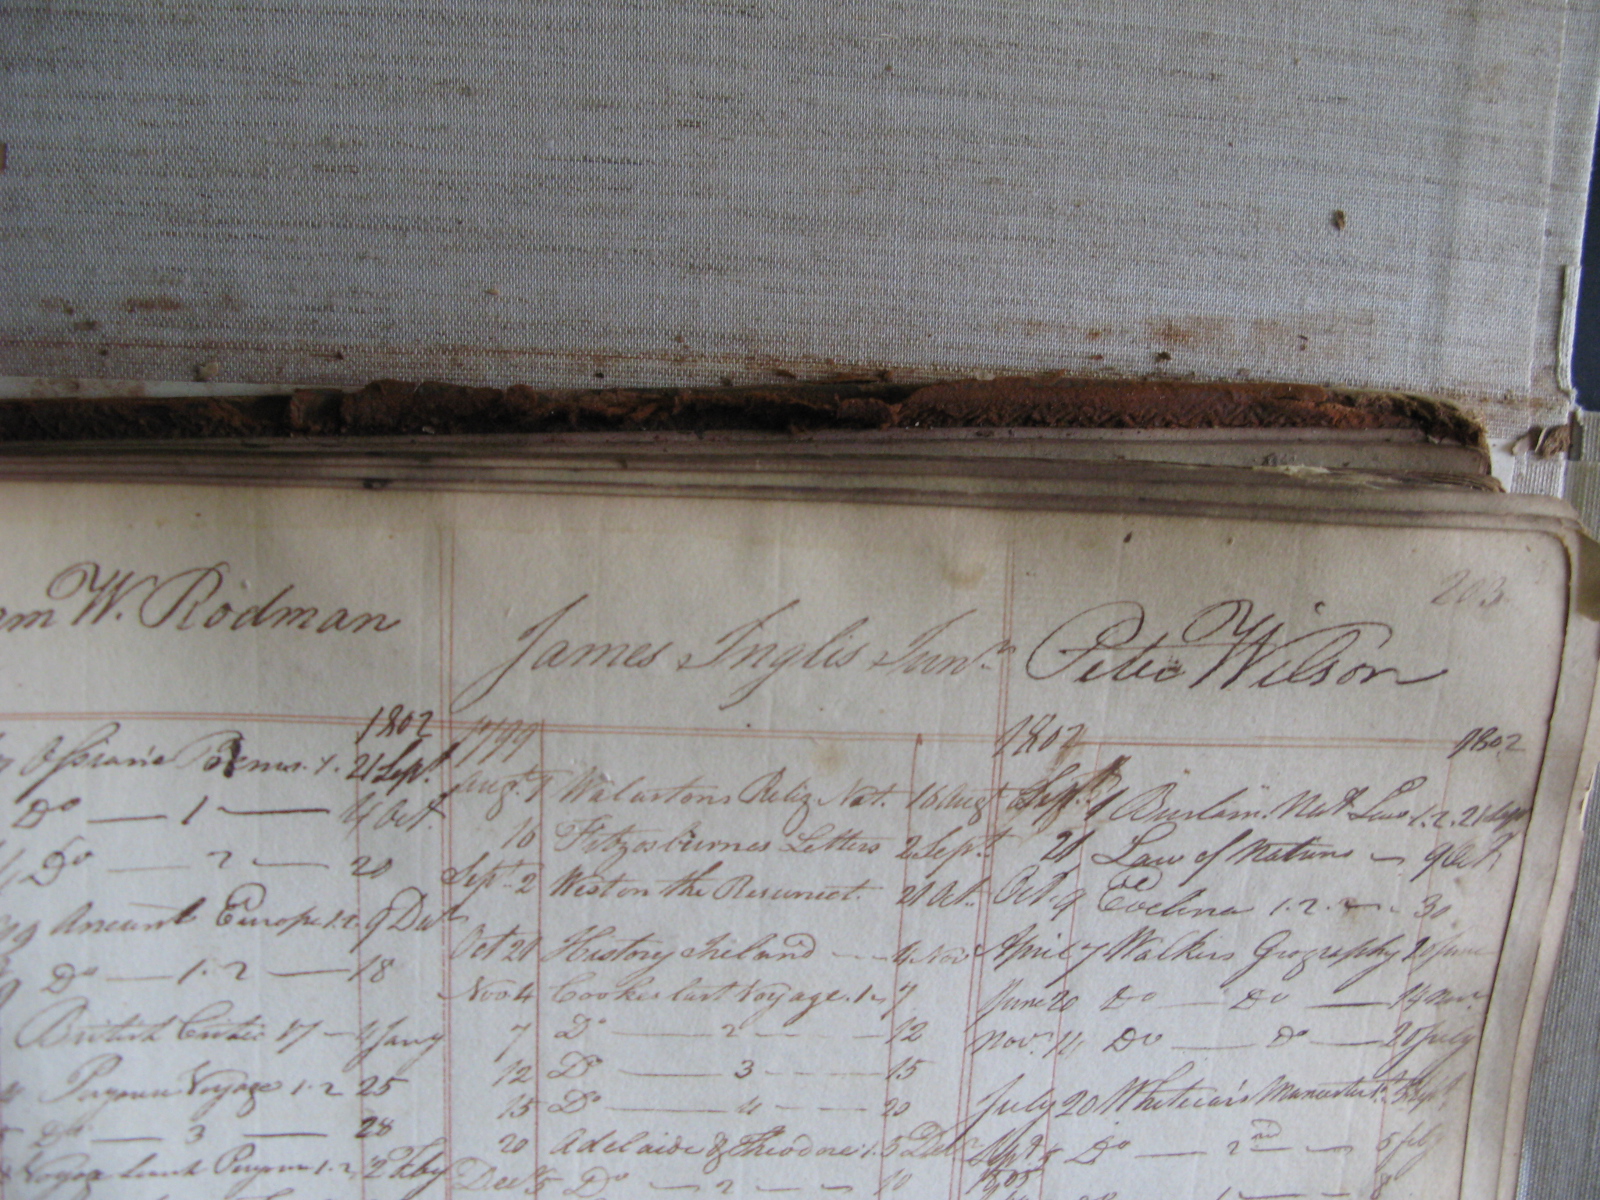 203
W. Rodman
1802
Poems. 1. 21 Sept.
Do — 1 — 4 Oct.
Do — 2 — 20
Ancient Europe 1.2. 9 Dec
Do — 1.2 — 18
British Critic 17 — 4 Jany
Voyage 1.2 25
Do — 3 — 28
James Inglis Junr.
1799
Augt. 7 Walastons Relig. Nat. 16 Augt
16 Fitzosbornes Letters 2 Sept.
Sept. 2 West on the Resurrect. 21 Oct.
Oct 21 History Ireland — 4 Nov
Nov 4 Cookes last Voyage. 1 — 7
7 Do — 2 — 12
12 Do — 3 — 15
15 Do — 4 — 20
20 Adelaide & Theodore 1. 5 Dec
Dec 5 Do — 2 — 10
Peter Wilson
1802 1802
Sept. 1 Burlam. Nat Law 1.2. 21 Sept
21 Law of Nature — 9 Oct
Oct. 9 Evelina 1.2. — 30
April 7 Walkers Geography 20 June
June 20 Do — Do — 14 Nov.
Nov. 14 Do — Do — 20 July
July 20 Manchester 1st. Sept.
Sept 5 Do — 2nd — 5 feby
1805